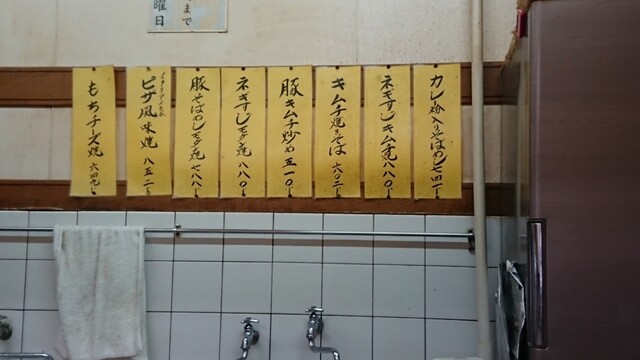 まで
曜日
カレー粉入りそばめし七四一
ネギすじキムチ焼八八〇
キムチ焼きそば 六〇二
豚キムチ炒め 五一〇
ネギすじモダン焼 八八〇
豚そばめしモダン焼 七八八
ピザ風味焼 八五二
もちチーズ焼 六四九